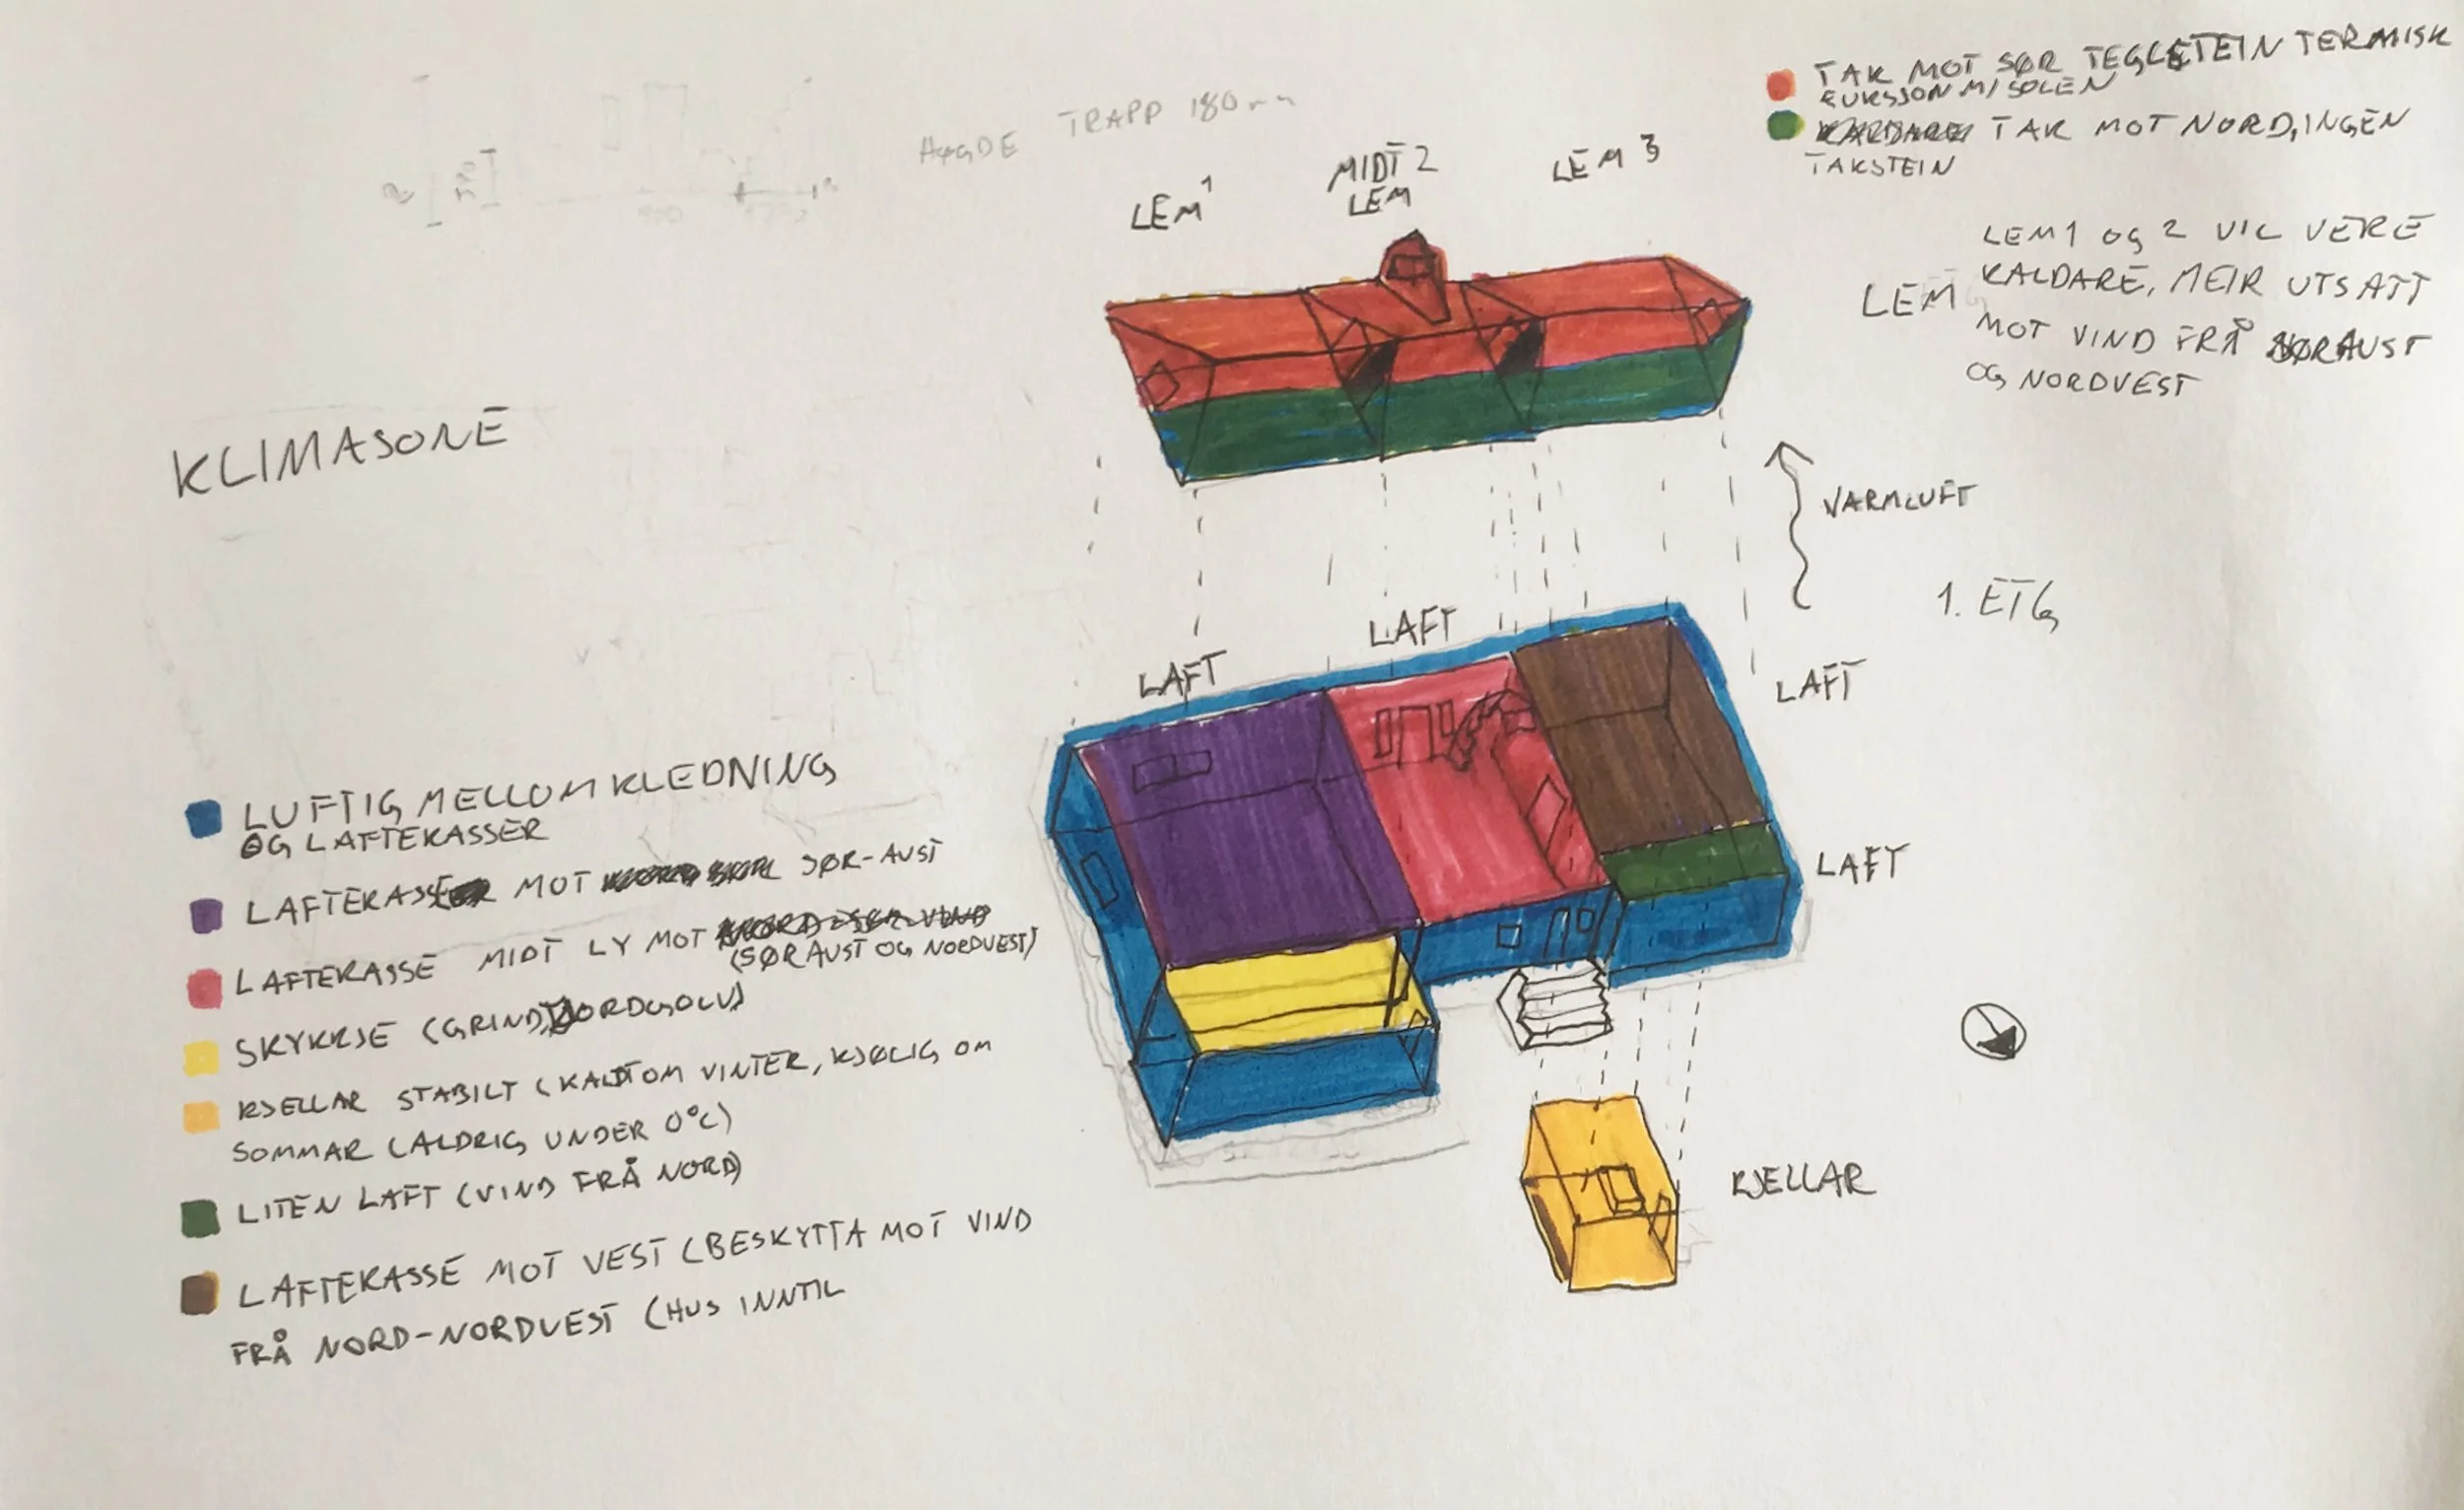 TAK MOT SØR TEGLSTEIN TERMISK
M/SOLEN
TAK MOT NORD, INGEN
TAKSTEIN
HØGDE TRAPP 180
LEM 1
MIDT 2
LEM
LEM 3
LEM
LEM 1 OG 2 VIL VERE
KALDARE, MEIR UTSATT
MOT VIND FRÅ SØRAUST
OG NORDVEST
KLIMASONE
VARMLUFT
1. ETG
LAFT
LAFT
LAFT
LAFT
KJELLAR
LUFTIG MELLOM KLEDNING
OG LAFTEKASSER
LAFTEKASSE MOT SØR-AUST
LAFTEKASSE MIDT LY MOT
(SØRAUST OG NORDVEST)
SKYKKJE (GRIND, JORDGOLV)
KJELLAR STABILT (KALDT OM VINTER, KJØLIG OM
SOMMAR (ALDRIG UNDER 0°C)
LITEN LAFT (VIND FRÅ NORD)
LAFTEKASSE MOT VEST (BESKYTTA MOT VIND
FRÅ NORD-NORDVEST (HUS INNTIL